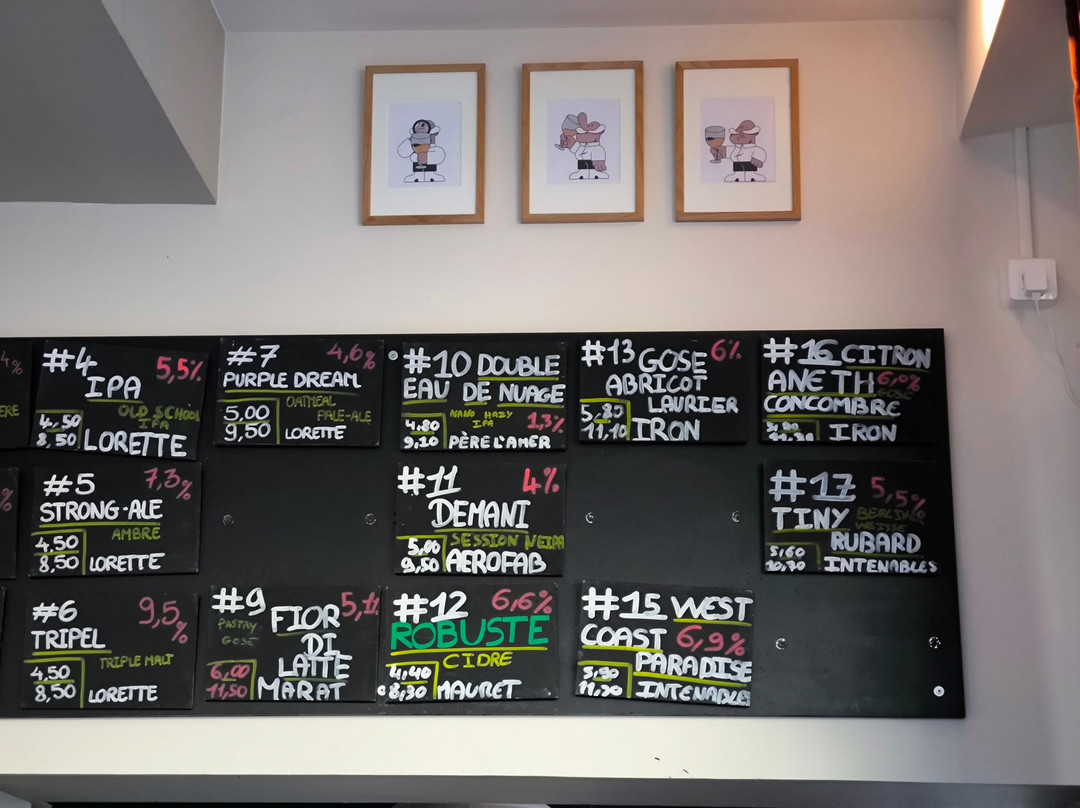 4%
ERE
%
#4
5,5%
IPA
OLD SCHOOL
IPA
4,50
8,50 LORETTE
#5
7,3%
STRONG-ALE
AMBRE
4.50
8,50 LORETTE
#6
9,5%
TRIPEL
TRIPLE MALT
4.50
8,50 LORETTE
#7
4,6%
PURPLE DREAM
OATMEAL
5,00 PALE-ALE
9,50 LORETTE
#9 FIOR 5,1%
PASTRY
GOSE DI
LATTE
6,00
11,50 MARAT
#10 DOUBLE
EAU DE NUAGE
NANO HAZY
IPA 1,3%
4,80
9,20 PÈRE L'AMER
#11 4%
DEMANI
SESSION NEIPA
5,00
9,50 AEROFAB
#12 6,6%
ROBUSTE
CIDRE
4,40
8,30 MAURET
#13 GOSE 6%
ABRICOT
LAURIER
5,80
11,10 IRON
#15 WEST
COAST 6,9%
PARADISE
5,90
11,30 INTENABLES
#16 CITRON
ANETH 6,0%
GOSE
CONCOMBRE
IRON
#17 5,5%
TINY BERLINER
WEISSE
RUBARD
5,60
10,70 INTENABLES